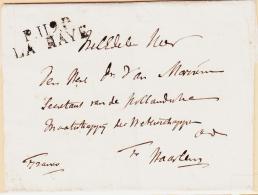 P.119.P.
LA HAYE
WelEdele Heer
Den Heer Dr Van Marum
Secretaris van de Hollandsche
Maatschappij der Wetenschappen
te Haarlem
Franco